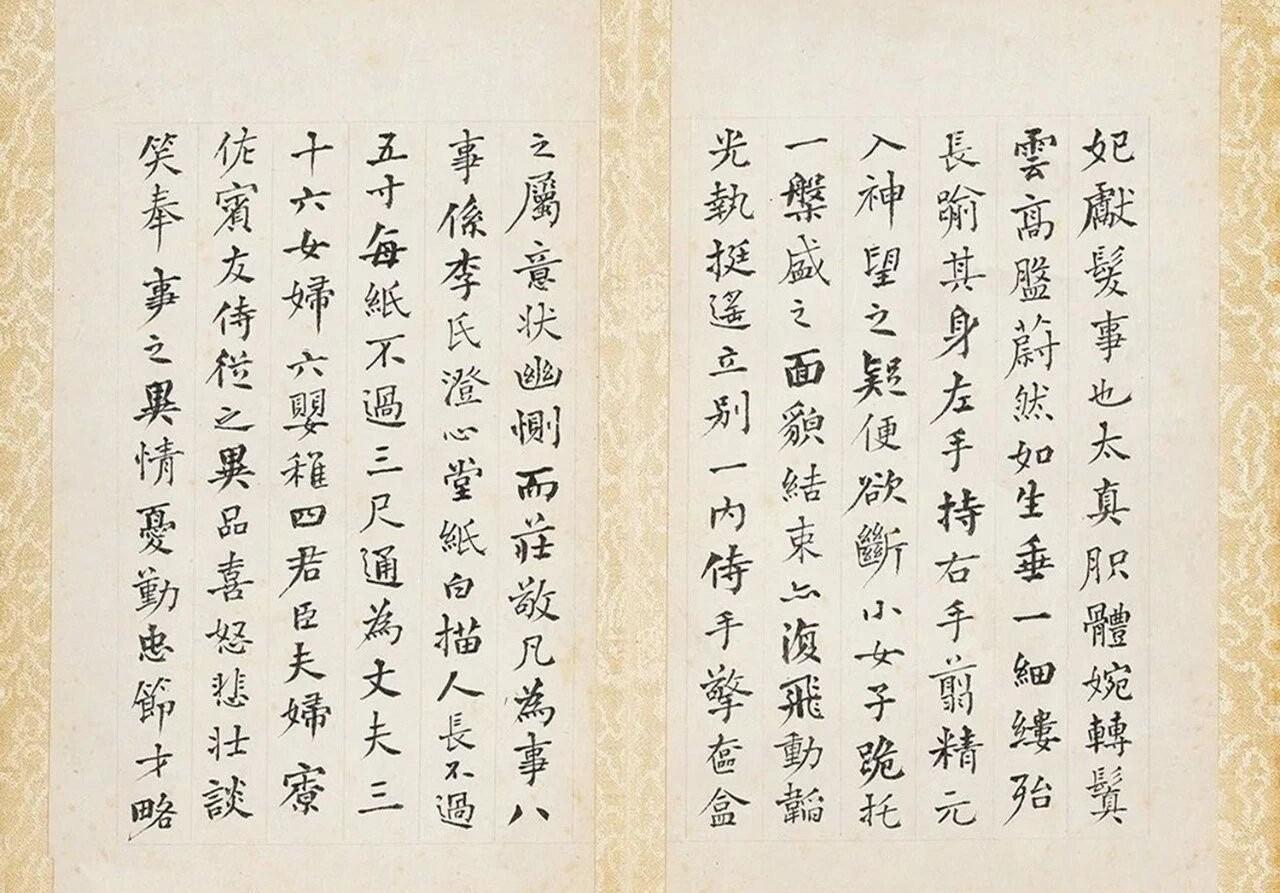 妃獻髮事也太真胑體婉轉鬒
雲高盤蔚然如生垂一細縷殆
長踰其身左手持右手翦精元
入神望之疑便欲斷小女子跪托
一槃盛之面貌結束亦復飛動韜
光執挺遥立別一内侍手擎奩盒
之屬意状幽惻而莊敬凡為事八
事係李氏澄心堂紙白描人長不過
五寸每紙不過三尺通為丈夫三
十六女婦六嬰稚四君臣夫婦寮
佐賓友侍從之異品喜怒悲壯談
笑奉事之異情憂勤忠節才略